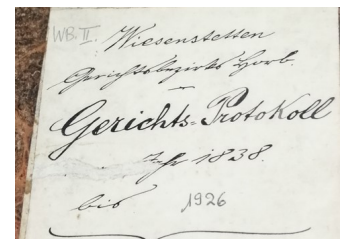 WB. II. Wiesenstetten
Gerichtsbezirks Horb.
Gerichts=Protokoll
1838.
bis 1926